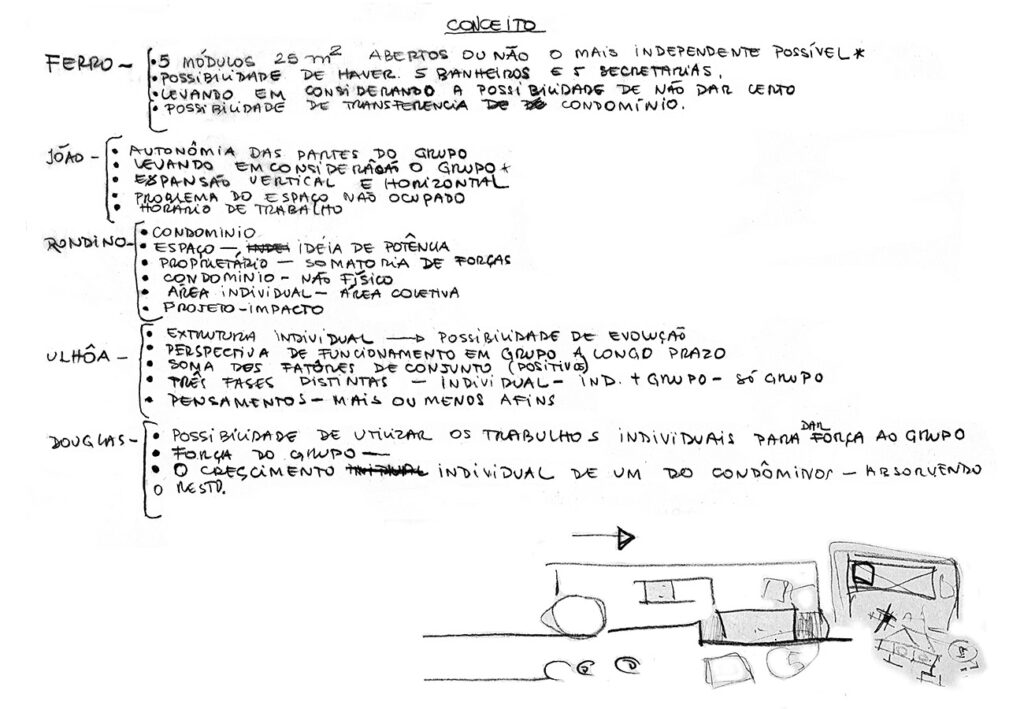 CONCEITO
FERRO – • 5 MÓDULOS 25 m² ABERTOS OU NÃO O MAIS INDEPENDENTE POSSÍVEL *
• POSSIBILIDADE DE HAVER. 5 BANHEIROS E 5 SECRETARIAS.
• LEVANDO EM CONSIDERANDO A POSSIBILIDADE DE NÃO DAR CERTO
• POSSIBILIDADE DE TRANSFERENCIA DE CONDOMÍNIO.
JOÃO – • AUTONÔMIA DAS PARTES DO GRUPO
• LEVANDO EM CONSIDERAÇÃO O GRUPO +
• EXPANSÃO VERTICAL E HORIZONTAL
• PROBLEMA DO ESPAÇO NÃO OCUPADO
• HORARIO DE TRABALHO
RONDINO – • CONDOMINIO
• ESPAÇO – IDÉIA DE POTÊNCIA
• PROPRIETÁRIO – SOMATORIA DE FORÇAS
• CONDOMINIO – NÃO FÍSICO
• ÁREA INDIVIDUAL – ÁREA COLETIVA
• PROJETO – IMPACTO
ULHÔA – • EXTRUTURA INDIVIDUAL → POSSIBILIDADE DE EVOLUÇÃO
• PERSPECTIVA DE FUNCIONAMENTO EM GRUPO A LONGO PRAZO
• SOMA DOS FATÔRES DE CONJUNTO (POSITIVOS)
• TRÊS FASES DISTINTAS – INDIVIDUAL – IND. + GRUPO – SÓ GRUPO
• PENSAMENTOS – MAIS OU MENOS AFINS
DOUGLAS – • POSSIBILIDADE DE UTILIZAR OS TRABULHOS INDIVIDUAIS PARA DAR FORÇA AO GRUPO
• FORÇA DO GRUPO –
• O CRESCIMENTO INDIVIDUAL DE UM DO CONDÔMINOS – ABSORVENDO
O RESTO.